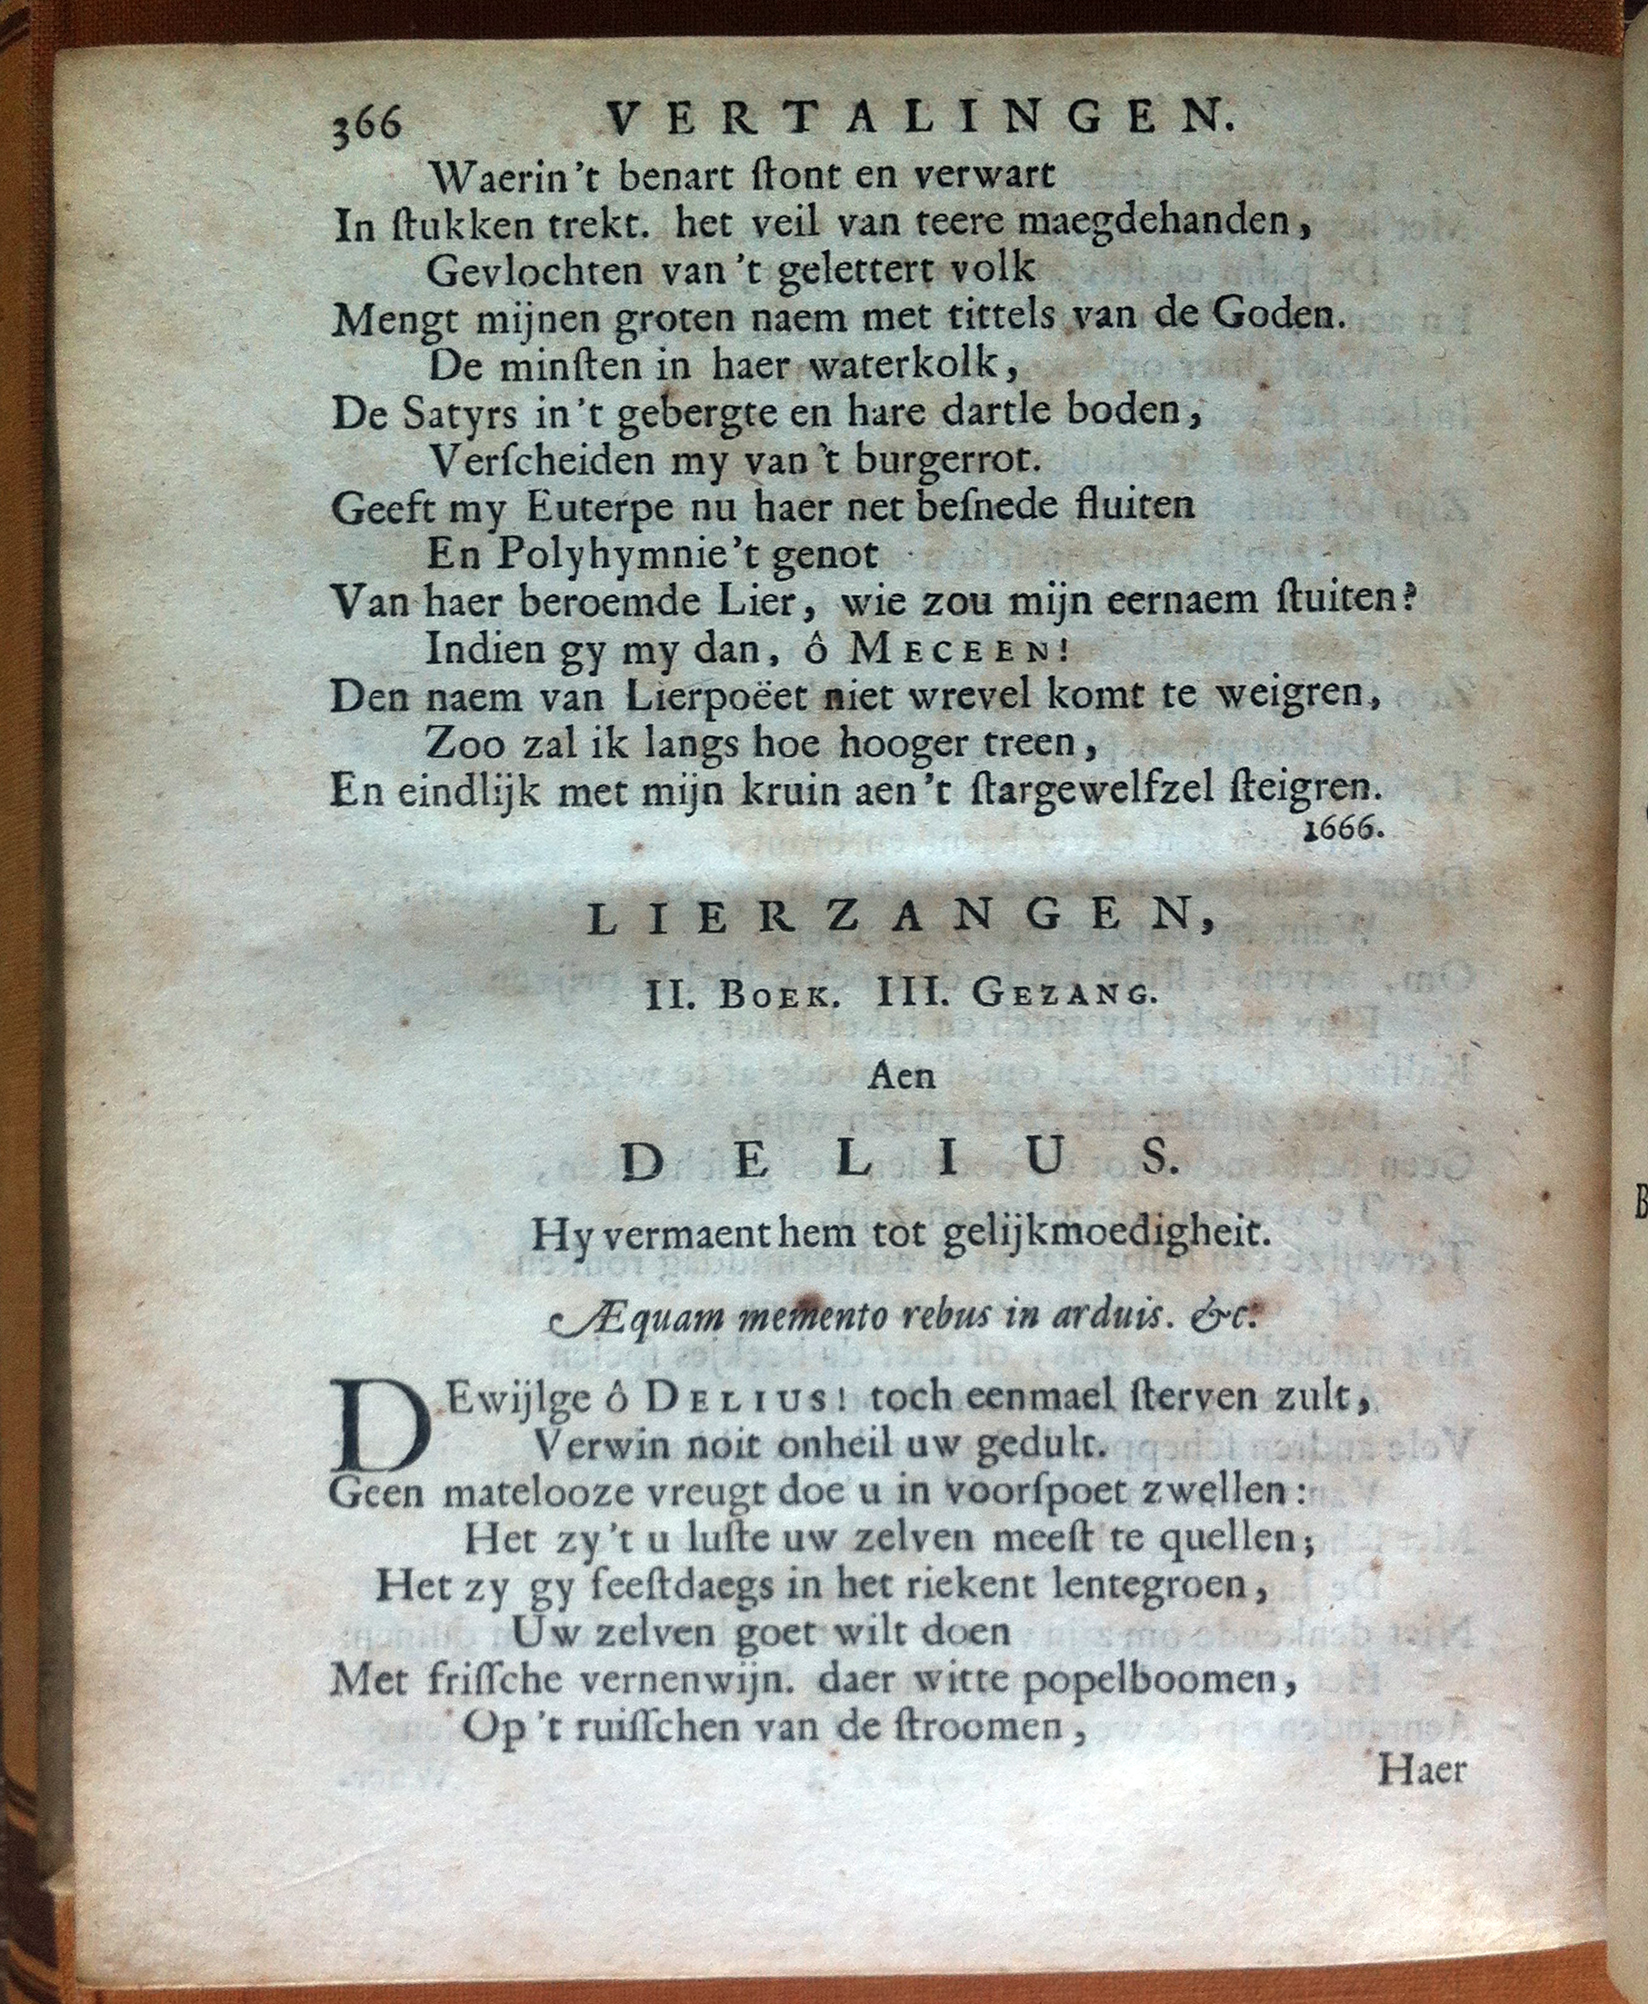 366 VERTALINGEN.
Waerin't benart ſtont en verwart
In ſtukken trekt. het veil van teere maegdehanden,
Gevlochten van 't gelettert volk
Mengt mijnen groten naem met tittels van de Goden.
De minſten in haer waterkolk,
De Satyrs in't gebergte en hare dartle boden,
Verſcheiden my van 't burgerrot.
Geeft my Euterpe nu haer net beſnede fluiten
En Polyhymnie't genot
Van haer beroemde Lier, wie zou mijn eernaem ſtuiten?
Indien gy my dan, ô MECEEN!
Den naem van Lierpoëet niet wrevel komt te weigren,
Zoo zal ik langs hoe hooger treen,
En eindlijk met mijn kruin aen't ſtargewelfzel ſteigren.
1666.
LIERZANGEN,
II. BOEK. III. GEZANG.
Aen
DELIUS.
Hy vermaent hem tot gelijkmoedigheit.
Æquam memento rebus in arduis. &c.
DEwijlge ô DELIUS! toch eenmael ſterven zult,
Verwin noit onheil uw gedult.
Geen matelooze vreugt doe u in voorſpoet zwellen:
Het zy't u luſte uw zelven meeſt te quellen;
Het zy gy feeſtdaegs in het riekent lentegroen,
Uw zelven goet wilt doen
Met friſſche vernenwijn. daer witte popelboomen,
Op 't ruiſſchen van de ſtroomen,
Haer